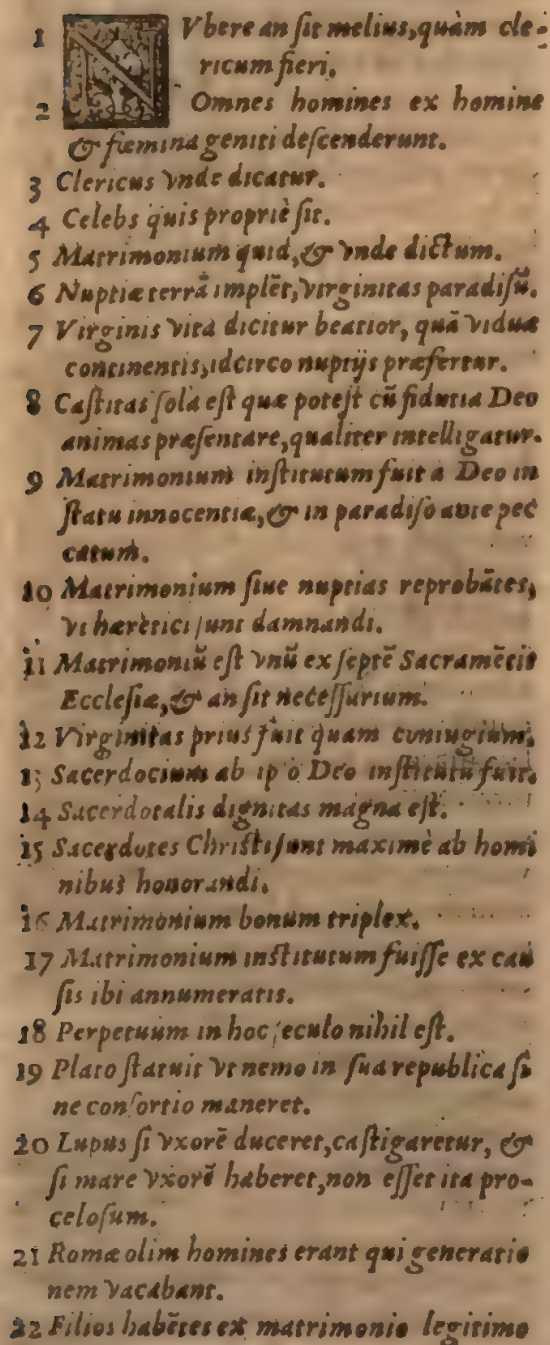 1 NVbere an sit melius, quàm cle-
ricum fieri.
2 Omnes homines ex homine
& fœmina geniti descenderunt.
3 Clericus vnde dicatur.
4 Celebs quis propriè sit.
5 Matrimonium quid, & vnde dictum.
6 Nuptiæ terrā implēt, virginitas paradisū.
7 Virginis vita dicitur beatior, quā viduæ
continentis, idcirco nuptijs præfertur.
8 Castitas sola est quæ potest cū fidutia Deo
animas præsentare, qualiter intelligatur.
9 Matrimonium institutum fuit à Deo in
statu innocentiæ, & in paradiso ante pec
catum.
10 Matrimonium siue nuptias reprobātes,
vt hæretici sunt damnandi.
11 Matrimoniū est vnū ex septē Sacramētis
Ecclesiæ, & an sit necessarium.
12 Virginitas prius fuit quam coniugium.
13 Sacerdocium ab ipso Deo institutū fuit.
14 Sacerdotalis dignitas magna est.
15 Sacerdotes Christi sunt maximè ab homi
nibus honorandi.
16 Matrimonium bonum triplex.
17 Matrimonium institutum fuisse ex cau
sis ibi annumeratis.
18 Perpetuum in hoc seculo nihil est.
19 Plato statuit vt nemo in sua republica si
ne consortio maneret.
20 Lupus si vxorē duceret, castigaretur, &
si mare vxorē haberet, non esset ita pro-
celosum.
21 Romæ olim homines erant qui generatio
nem vacabant.
22 Filios habētes ex matrimonio legitimo